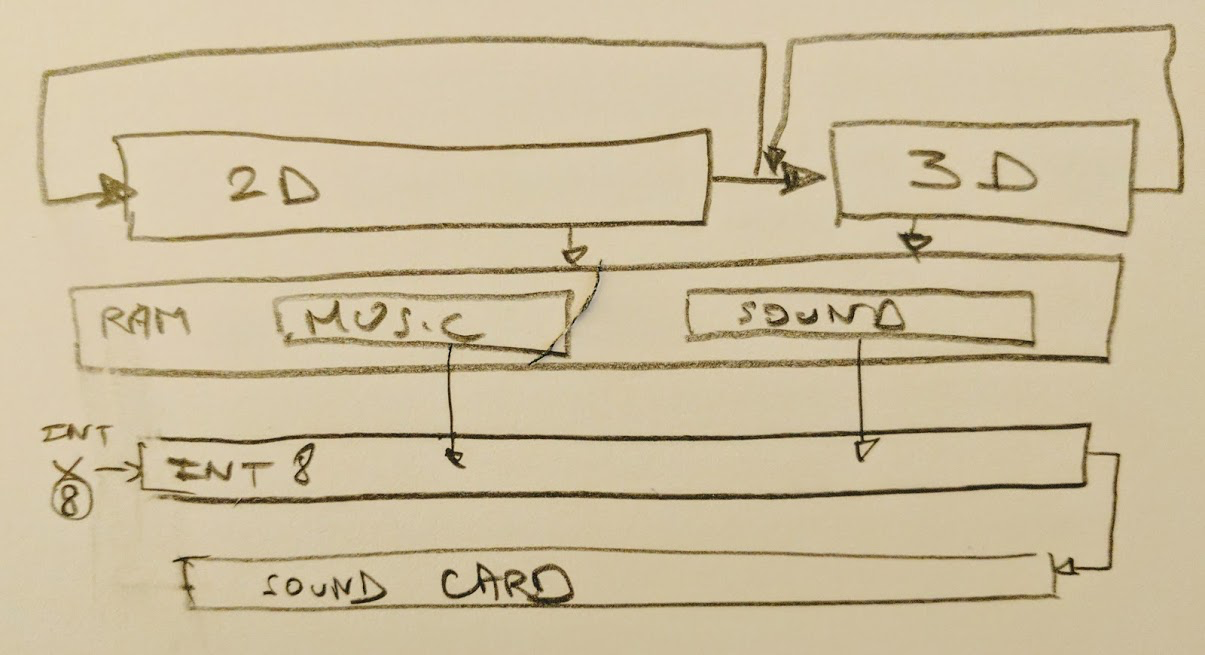 2D
3D
RAM
MUSIC
SOUND
INT
8
INT 8
SOUND CARD